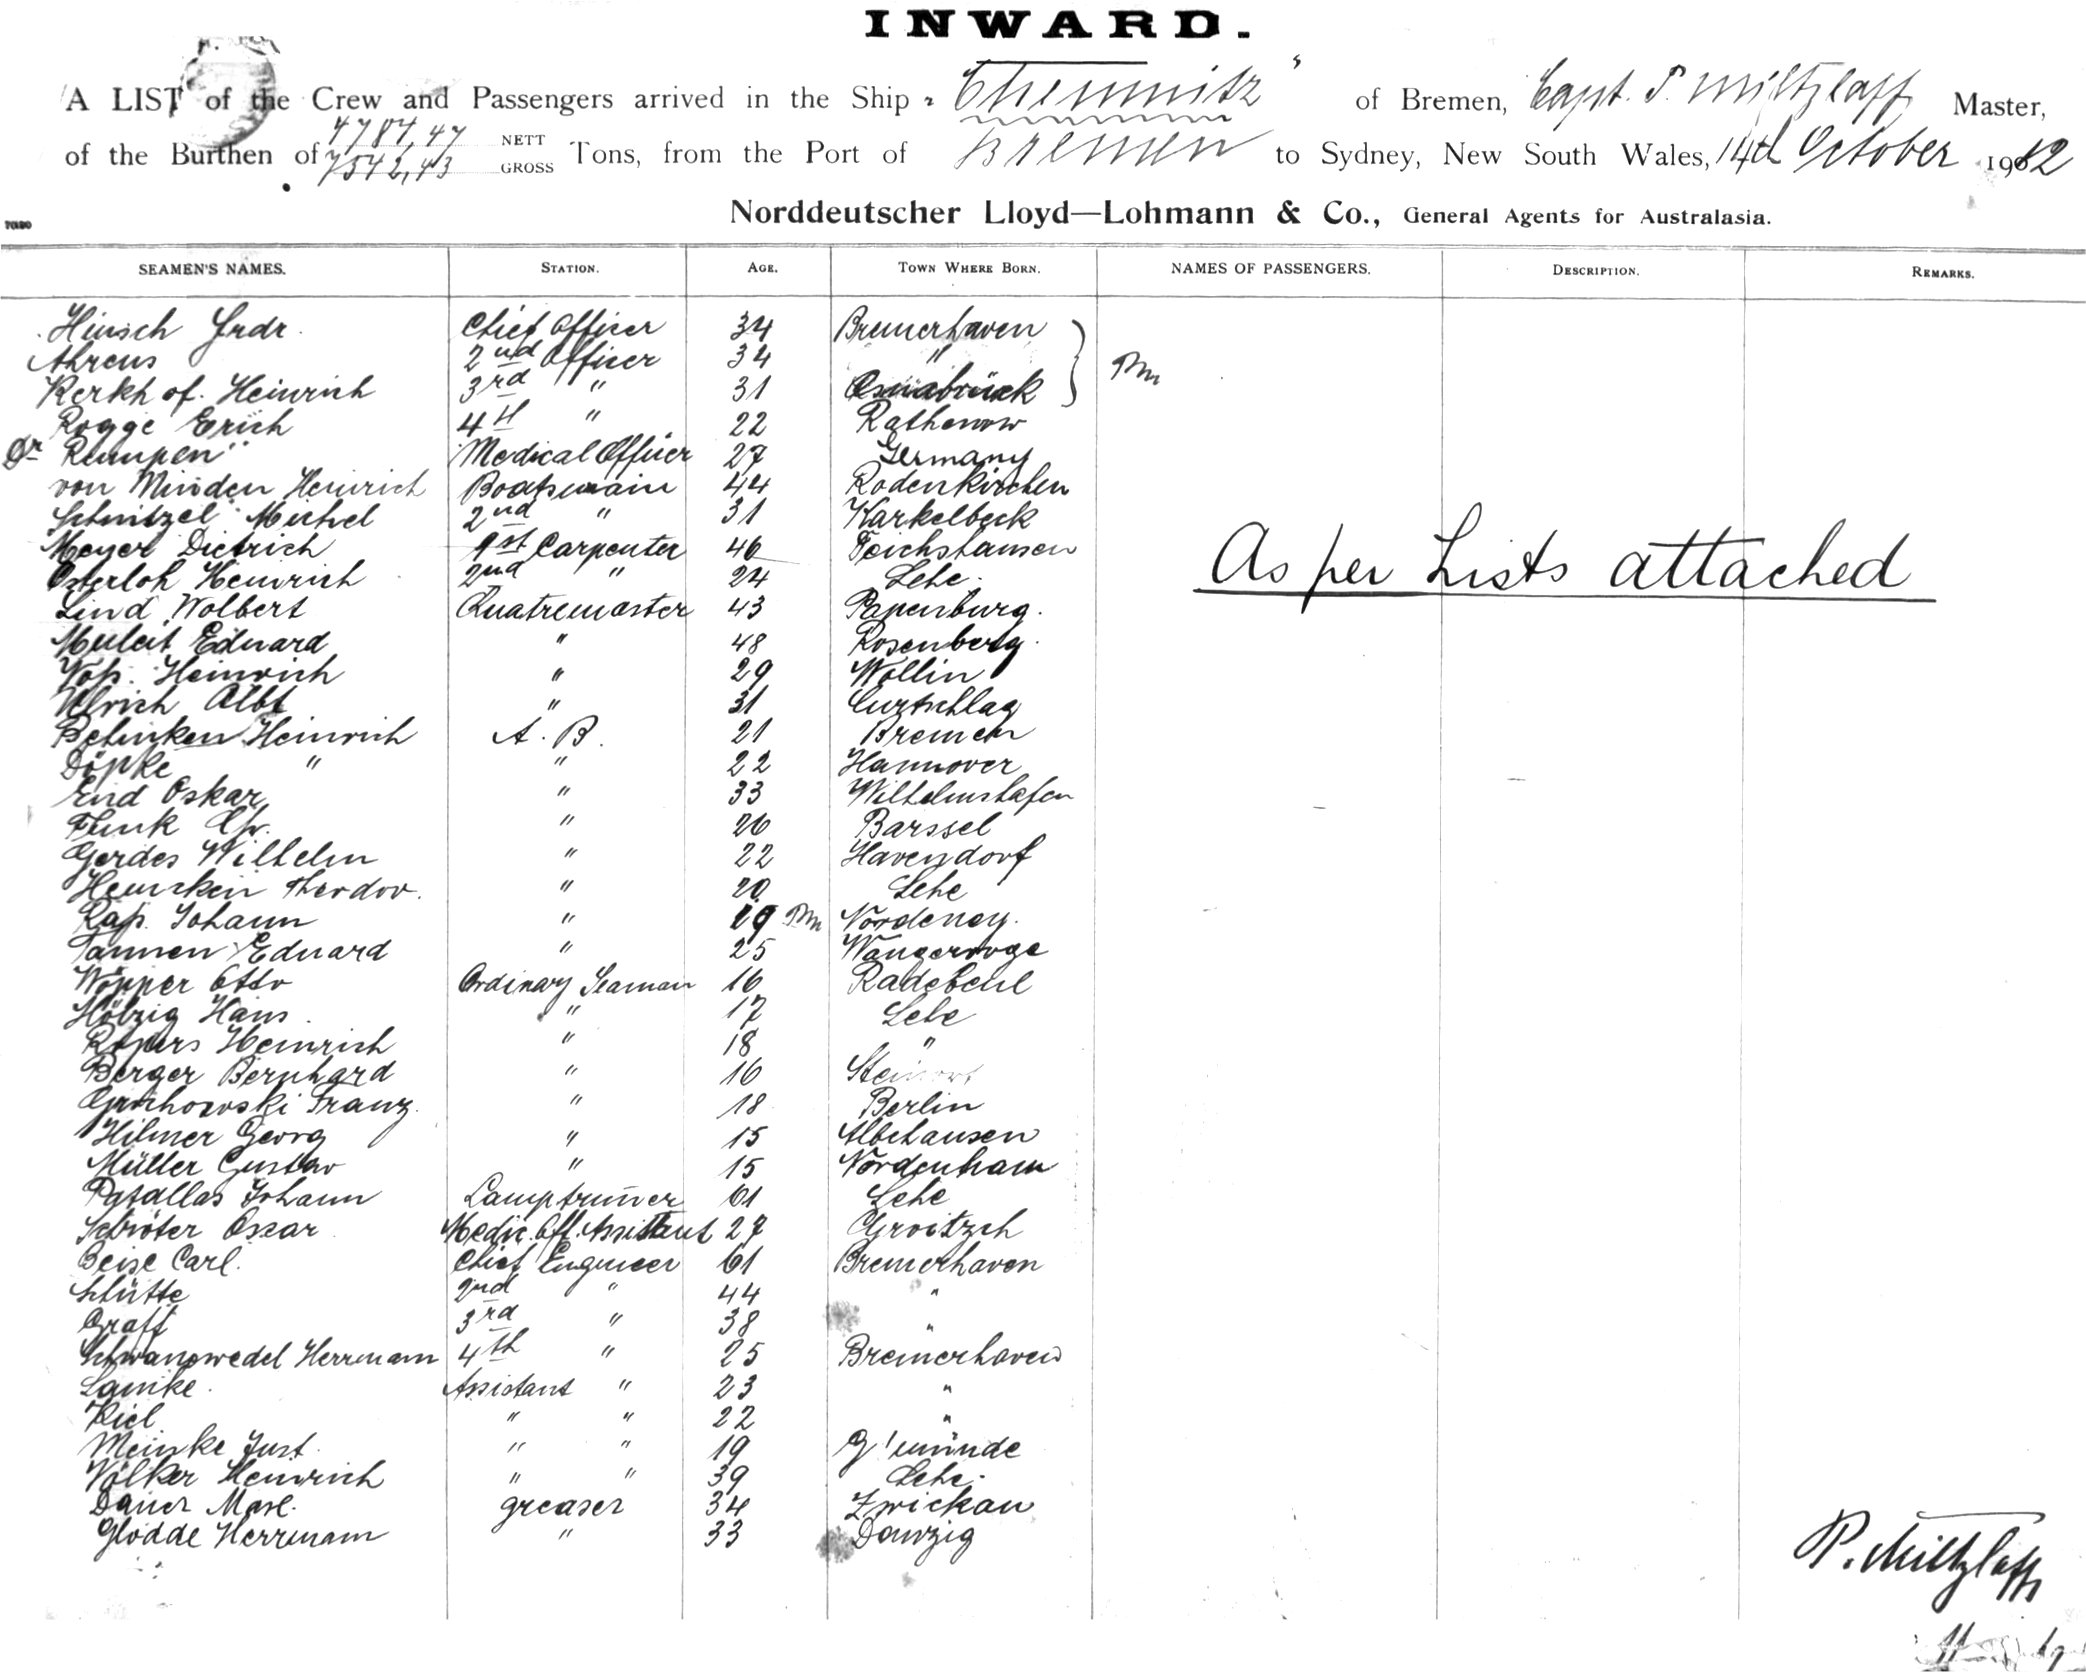 INWARD.
A LIST of the Crew and Passengers arrived in the Ship "Chemnitz" of Bremen, Capt. P. Miltzlaff Master,
of the Burthen of 4787,47 NETT 7542,43 GROSS Tons, from the Port of Bremen to Sydney, New South Wales, 14th October 1912
Norddeutscher Lloyd—Lohmann & Co., General Agents for Australasia.
SEAMEN'S NAMES. STATION. AGE. TOWN WHERE BORN. NAMES OF PASSENGERS. DESCRIPTION. REMARKS.
Hinsch Frdr. Chief Officer 34 Bremerhaven
Ahrens 2nd Officer 34 "
Kerkhof. Heinrich 3rd " 31 Osnabrück
Rogge Erich 4th " 22 Rathenow
Dr Rempen Medical Officer 27 Germany
von Minden Heinrich Boatswain 44 Rodenkirchen
Schnitzel Michel 2nd " 31 Karkelbeck
Meyer Dietrich 1st Carpenter 46 Teichshausen
Osterloh Heinrich 2nd " 24 Lehe.
As per Lists attached
Lind Wolbert Quatremaster 43 Papenburg.
Muleit Eduard " 48 Rosenberg.
Voß. Heinrich " 29 Wollin
Ulrich Albt " 31 Curtschlag
Behnken Heinrich A. B. 21 Bremen
Döpke " " 22 Hannover
End Oskar " 33 Wilhelmshafen
Funk " 26 Barssel
Gerdes Wilhelm " 22 Havendorf
Heinrken Theodor. " 20 Lehe
Raß. Johann " 29 Nordeney.
Tannen Eduard " 25 Wangerooge
Wöpper Otto Ordinary Seaman 16 Radebeul
Hölzig Hans " 17 Lehe
Röpers Heinrich " 18 "
Berger Bernhard " 16
Grochowski Franz. " 18 Berlin
Hilmer Georg " 15 Abbehausen
Müller Gustav " 15 Nordenham
Patallas Johann Lamptrimer 61 Lehe
Schröter Oscar Medic. Off. Assistant 27 Groitzsch
Beise Carl. Chief Engineer 61 Bremerhaven
Schütte 2nd " 44 "
Graff 3rd " 38 "
Schwanewedel Herrmann 4th " 25 Bremerhaven
Lamke. Assistant " 23 "
Kiel " " 22 "
Meinke Just. " " 19 G'münde
Völker Heinrich " " 39 Lehe.
Dauer Marl. greaser 34 Zwickau
Glodde Herrmann " 33 Danzig
P. Miltzlaff